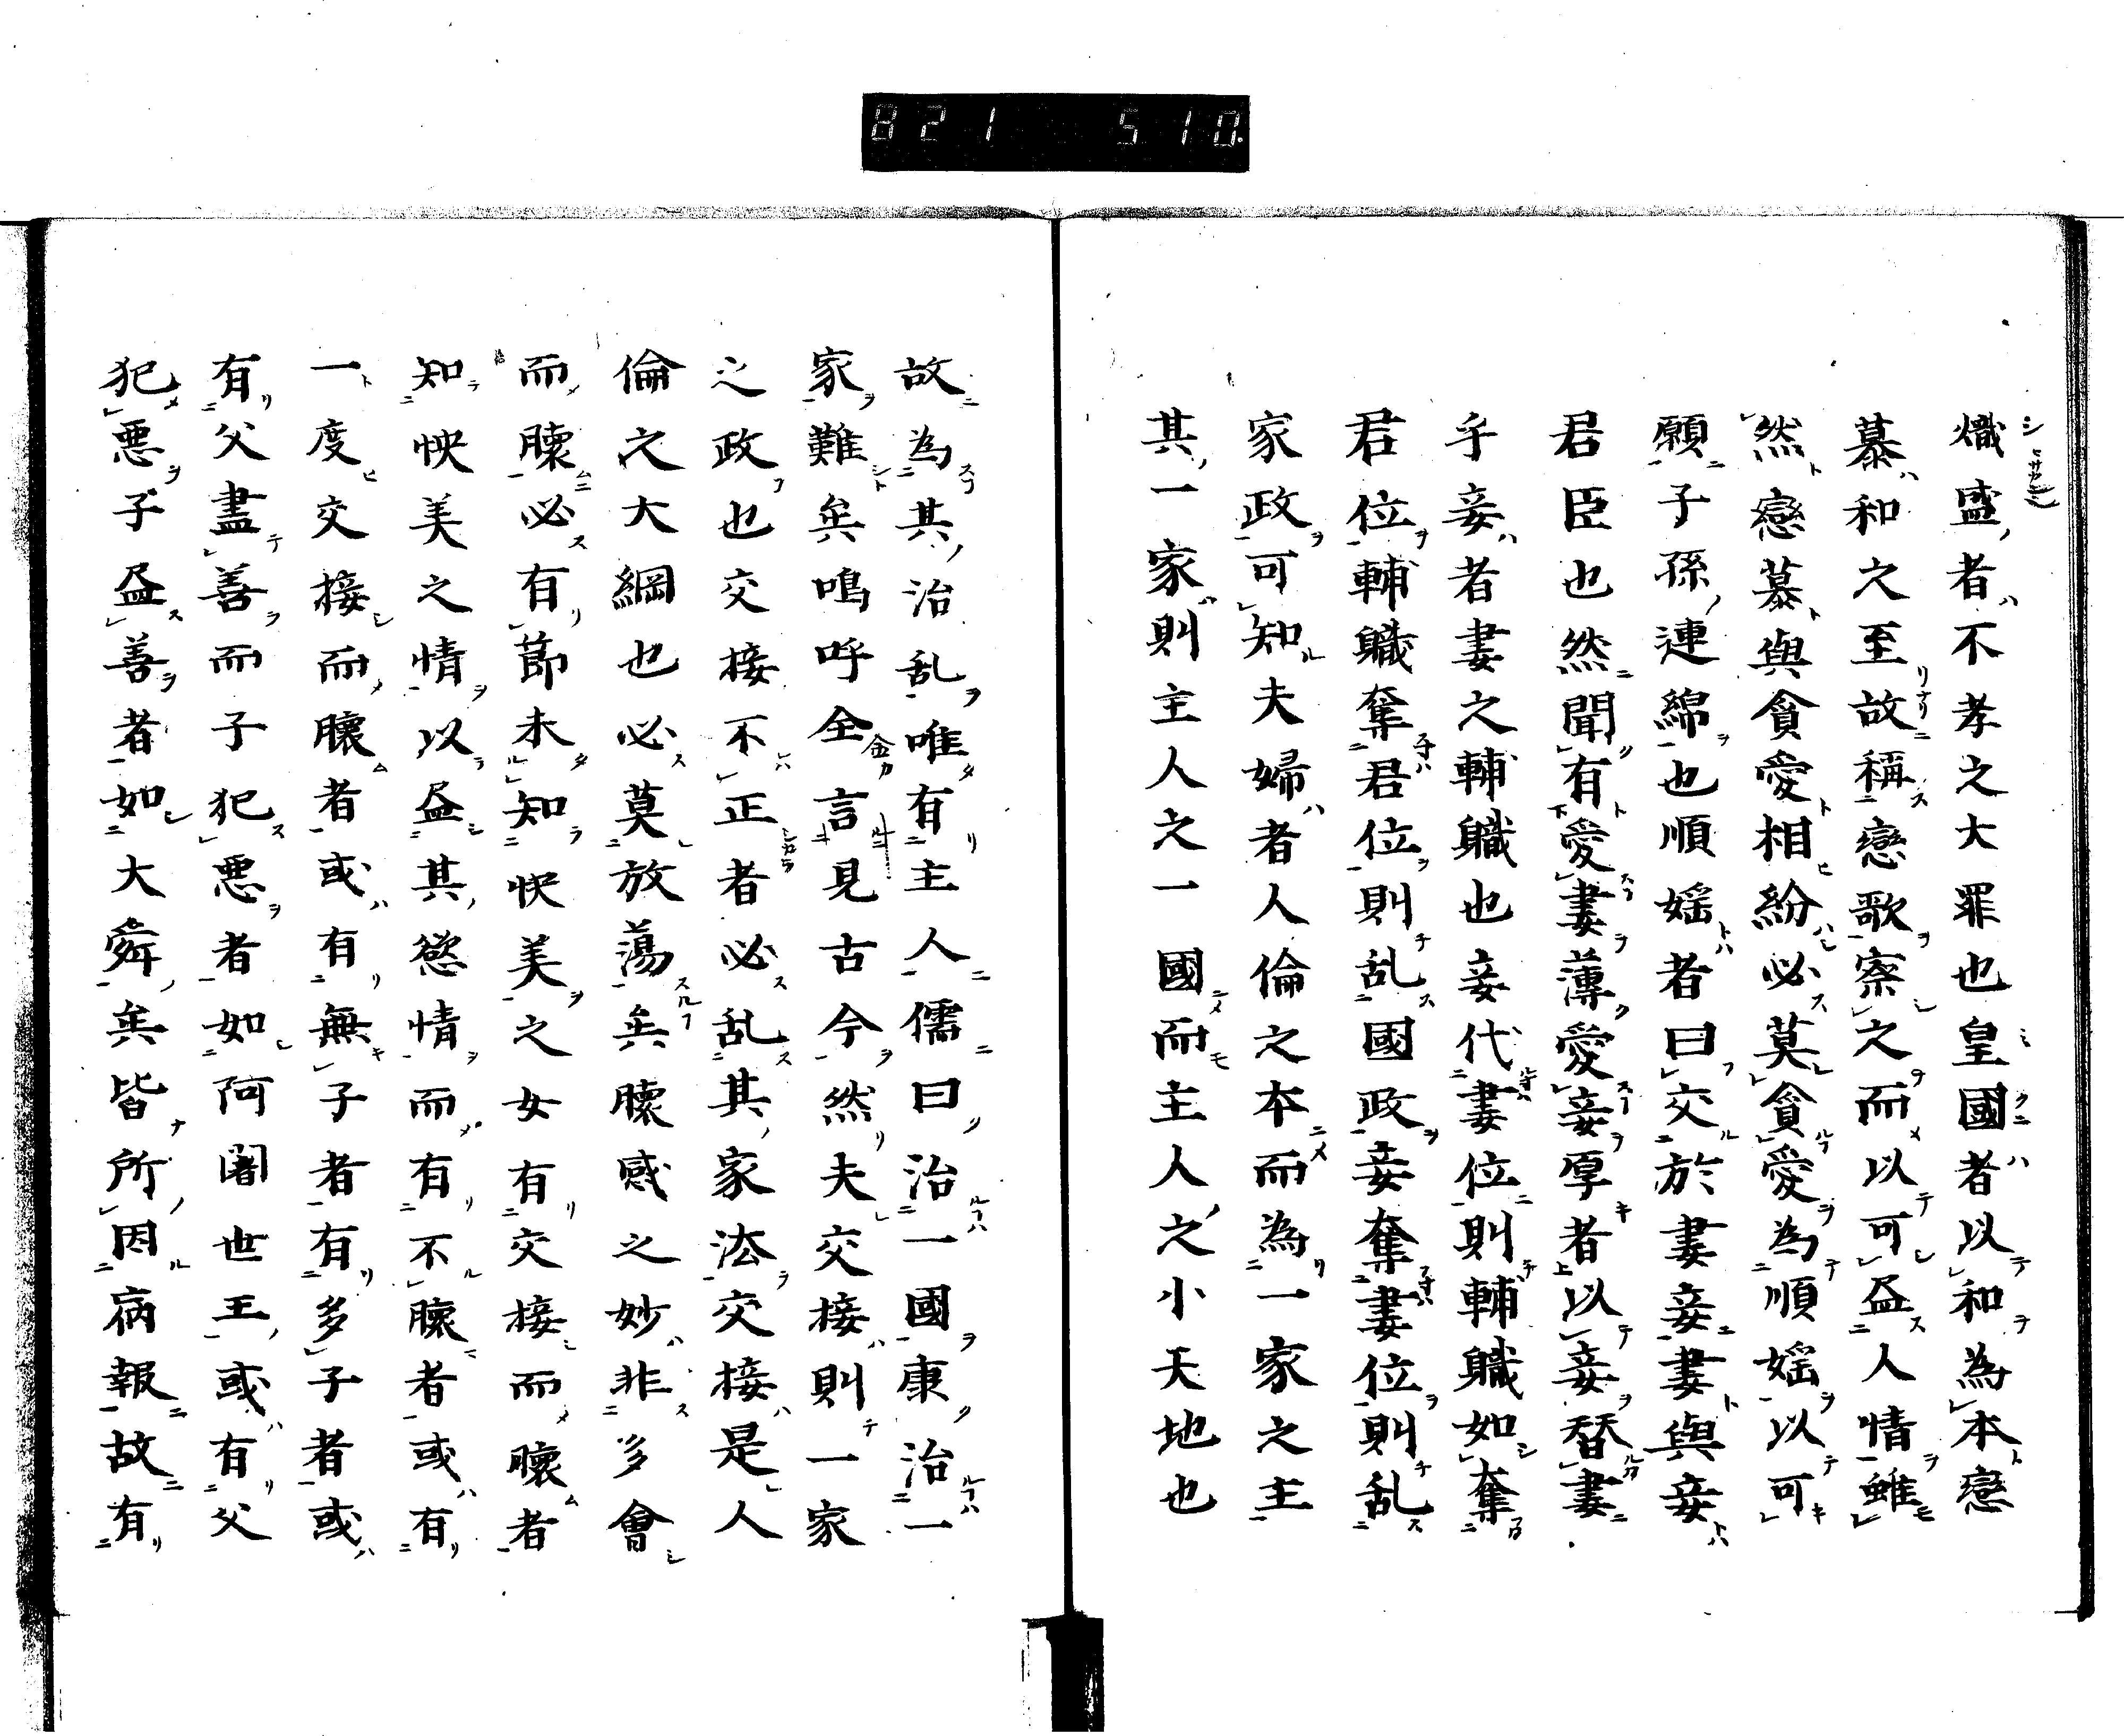 821 510.
熾盛者不孝之大罪也皇國者以和為本戀
慕和之至故稱戀歌察之而以可益人情雖
然戀慕與貪愛相紛必莫貪愛為順婬以可
願子孫連綿也順婬者曰交於妻妾妻與妾
君臣也然聞有愛妻薄愛妾厚者以妾替妻
乎妾者妻之輔職也妾代妻位則輔職如奪
君位輔職奪君位則乱國政妾奪妻位則乱
家政可知夫婦者人倫之本而為一家之主
其一家則主人之一國而主人之小天地也
故為其治乱唯有主人儒曰治一國康治一
家難矣嗚呼全言見古今然夫交接則一家
之政也交接不正者必乱其家法交接是人
倫之大綱也必莫放蕩矣懷感之妙非多會
而懷必有節未知快美之女有交接而懷者
知快美之情以益其慾情而有不懷者或有
一度交接而懷者或有無子者有多子者或
有父盡善而子犯悪者如阿闍世王或有父
犯悪子益善者如大舜矣皆所因病報故有